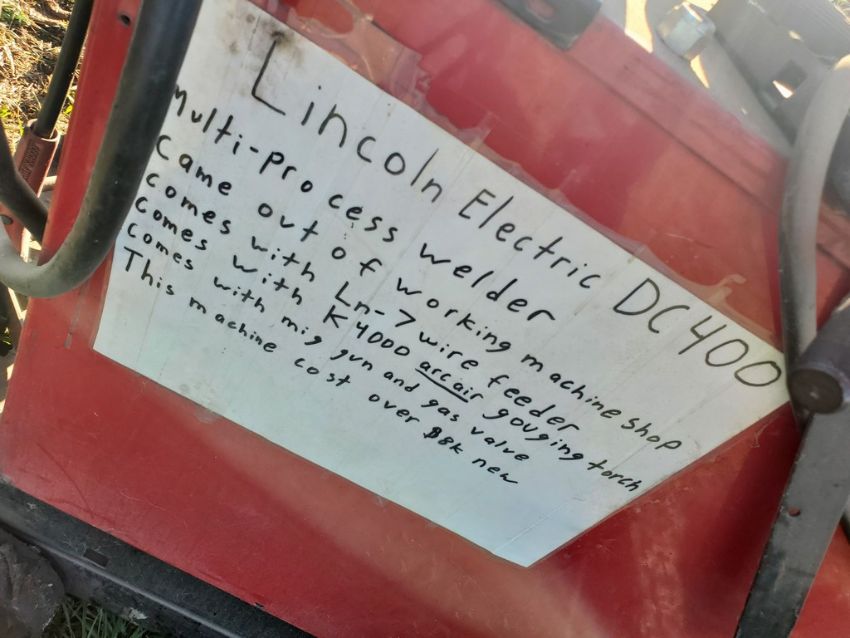 Lincoln Electric DC400
Multi-process welder
Came out of working machine shop
comes with Ln-7 wire feeder
comes with K4000 arcair gouging torch
comes with mig gun and gas valve
This machine cost over $8k new